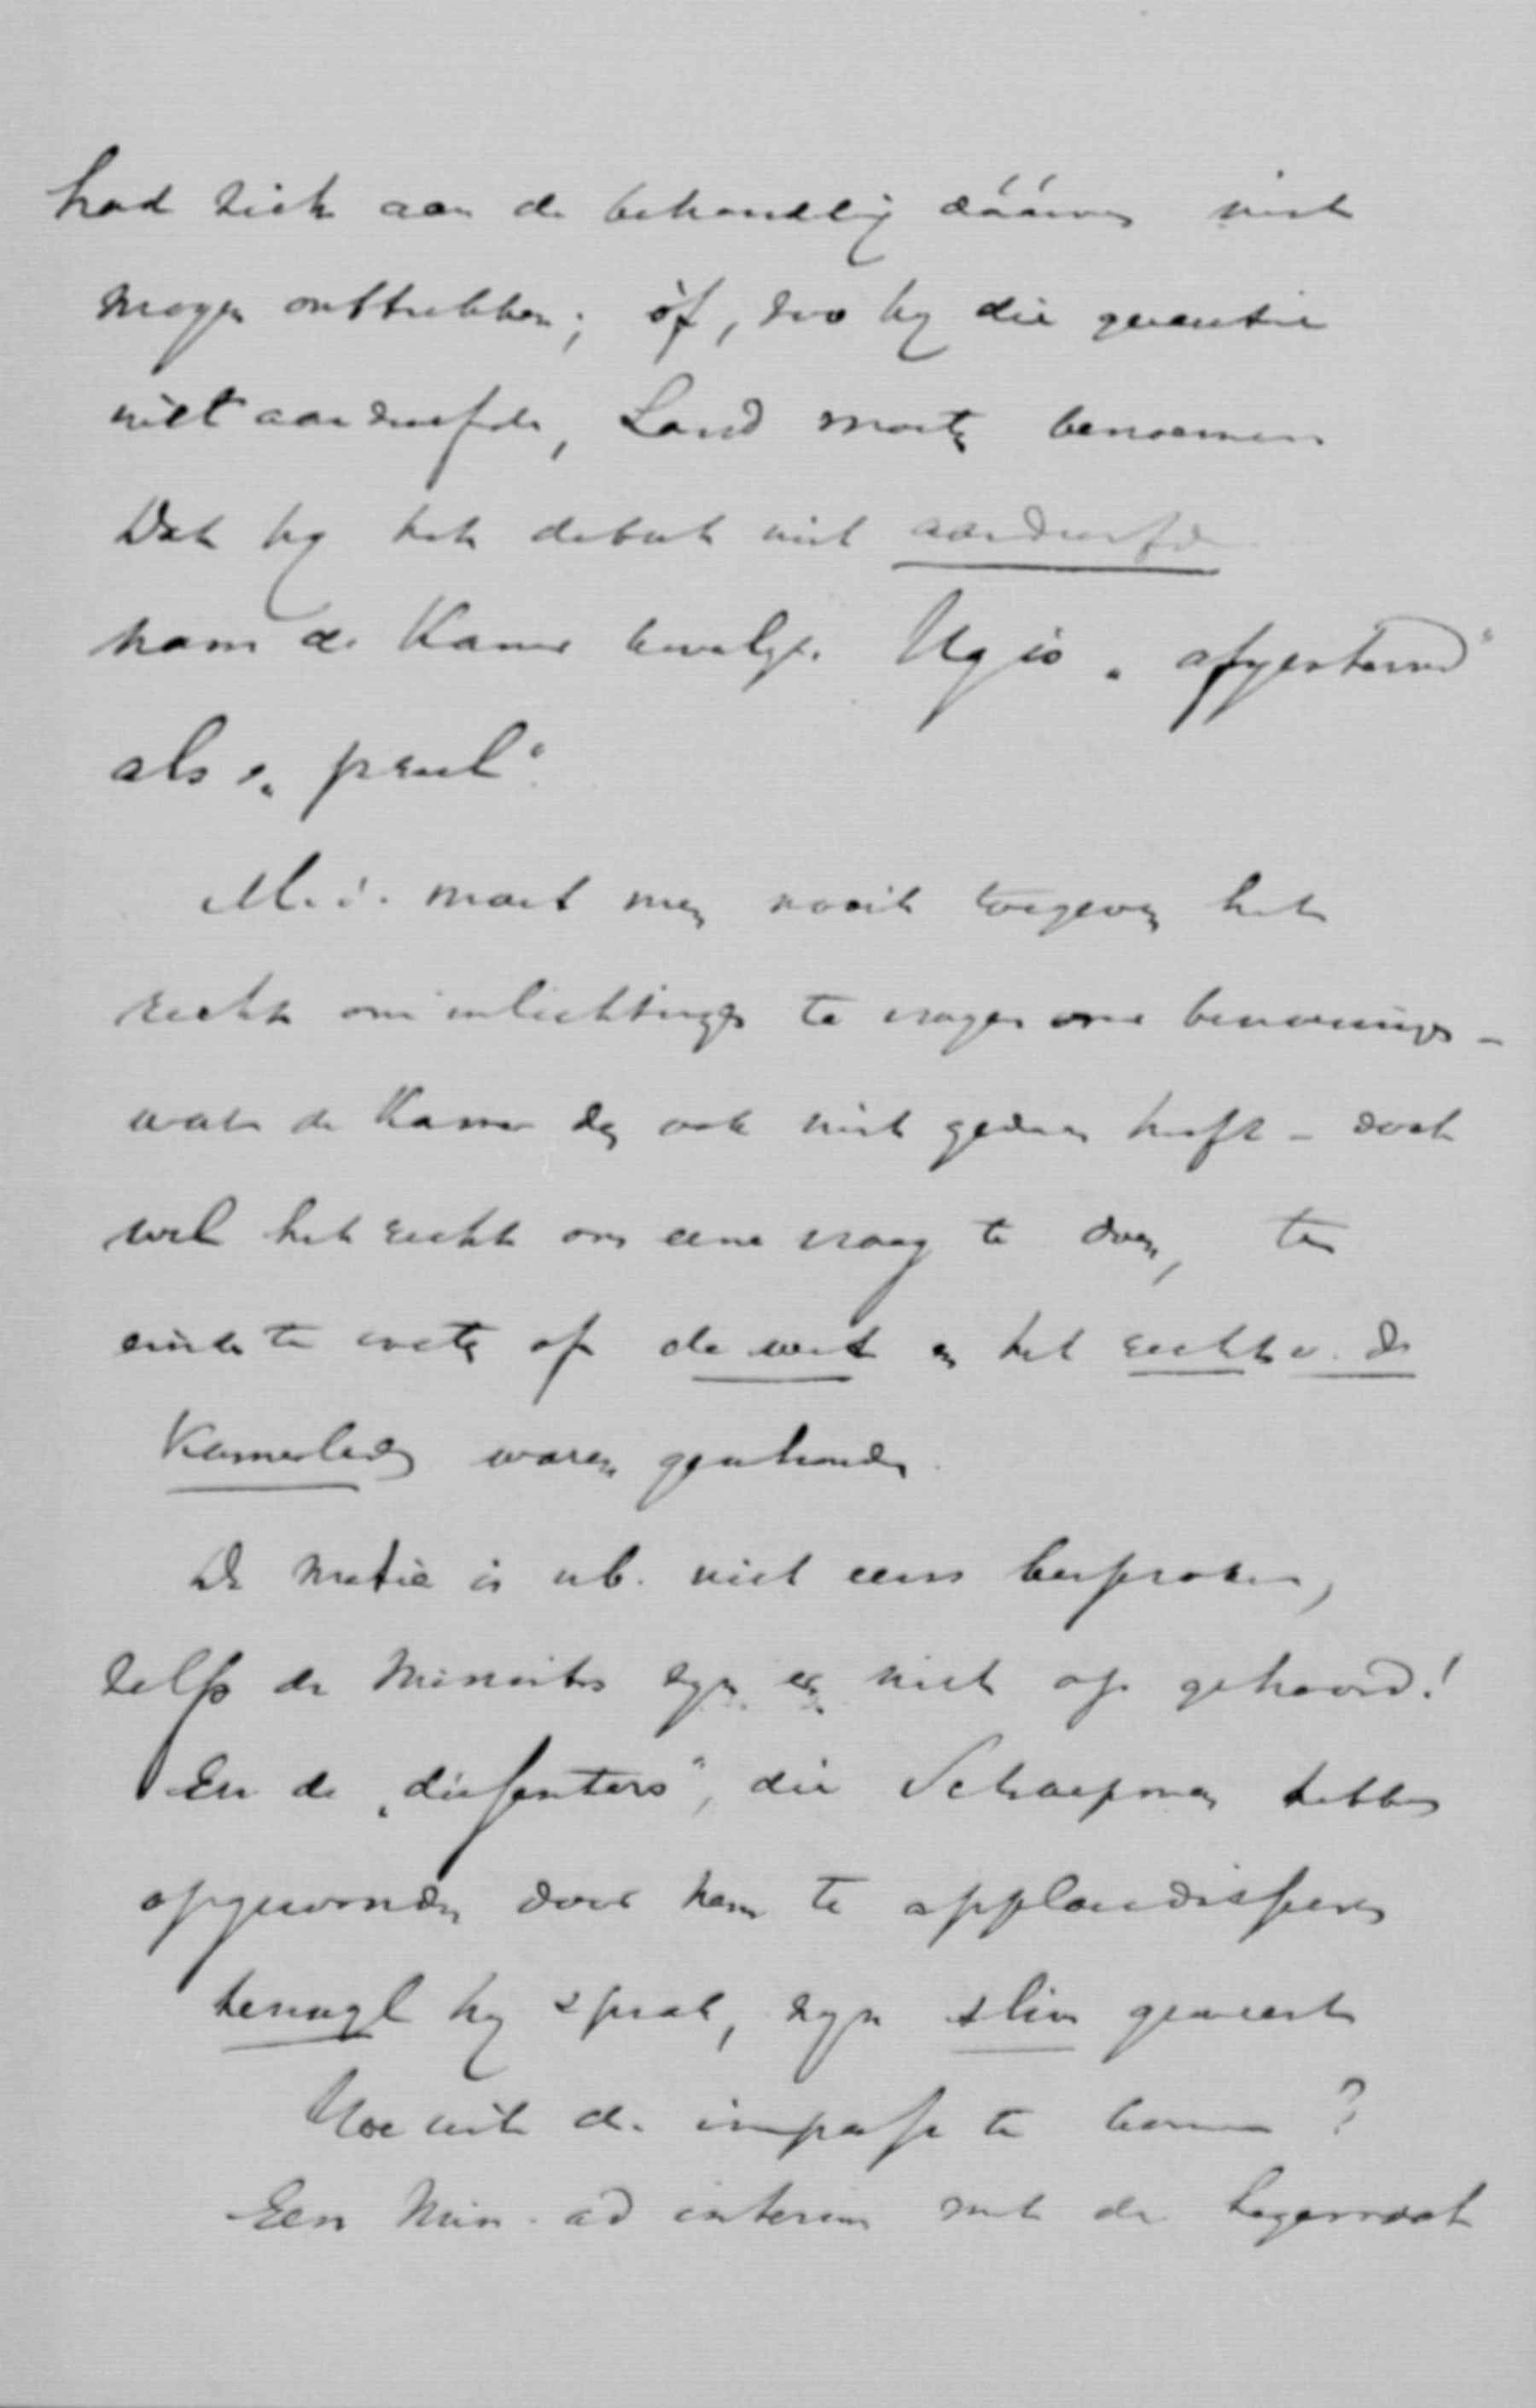 had zich aan de behandelig dáárvan niet
mogen onttrekken; òf, zoo hy die quaestie
niet aandurfde, Land moeten benoemen
Dat hy het debat niet aandurfde
nam de Kamer kwalyk. Hy is „afgestemd"
als „prul".
M.i. moet men nooit toegeven het
recht om inlichtingen te vragen over benoemingen –
wat de Kamer dan ook niet gedaan heeft – doch
wel het recht om eene vraag te doen, ten
einde te weten of de wet en het recht v. de
Kamerleden waren gehandhaafd.
De motie is nb. niet eens besproken,
zelfs de Ministers zyn er niet op gehoord!
En de „dissenters", die Schaepman hebben
opgewonden door hem te applaudisseren
terwyl hy sprak, zyn slim geweest
Hoe uit de impasse te komen?
Een Min. ad interim met de Legerwet